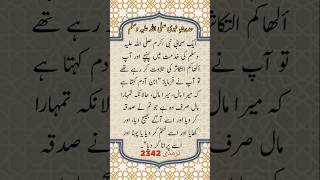 حدیثِ نبوی صلی اللہ علیہ وسلم
ألهاكم التكاثر
ایک صحابی نبی اکرم صلی اللہ علیہ
وسلم کی خدمت میں پہنچے اور آپ
ألهاكم التكاثر کی تلاوت کر رہے تھے
تو آپ نے فرمایا: "ابن آدم کہتا ہے
کہ میرا مال، میرا مال، حالانکہ تمہارا
مال صرف وہ ہے جو تم نے صدقہ
کر دیا اور اسے آگے بھیج دیا، اور
کھایا اور اسے ختم کر دیا یا پہنا اور
اسے پرانا کر دیا"۔
ترمذی 2342